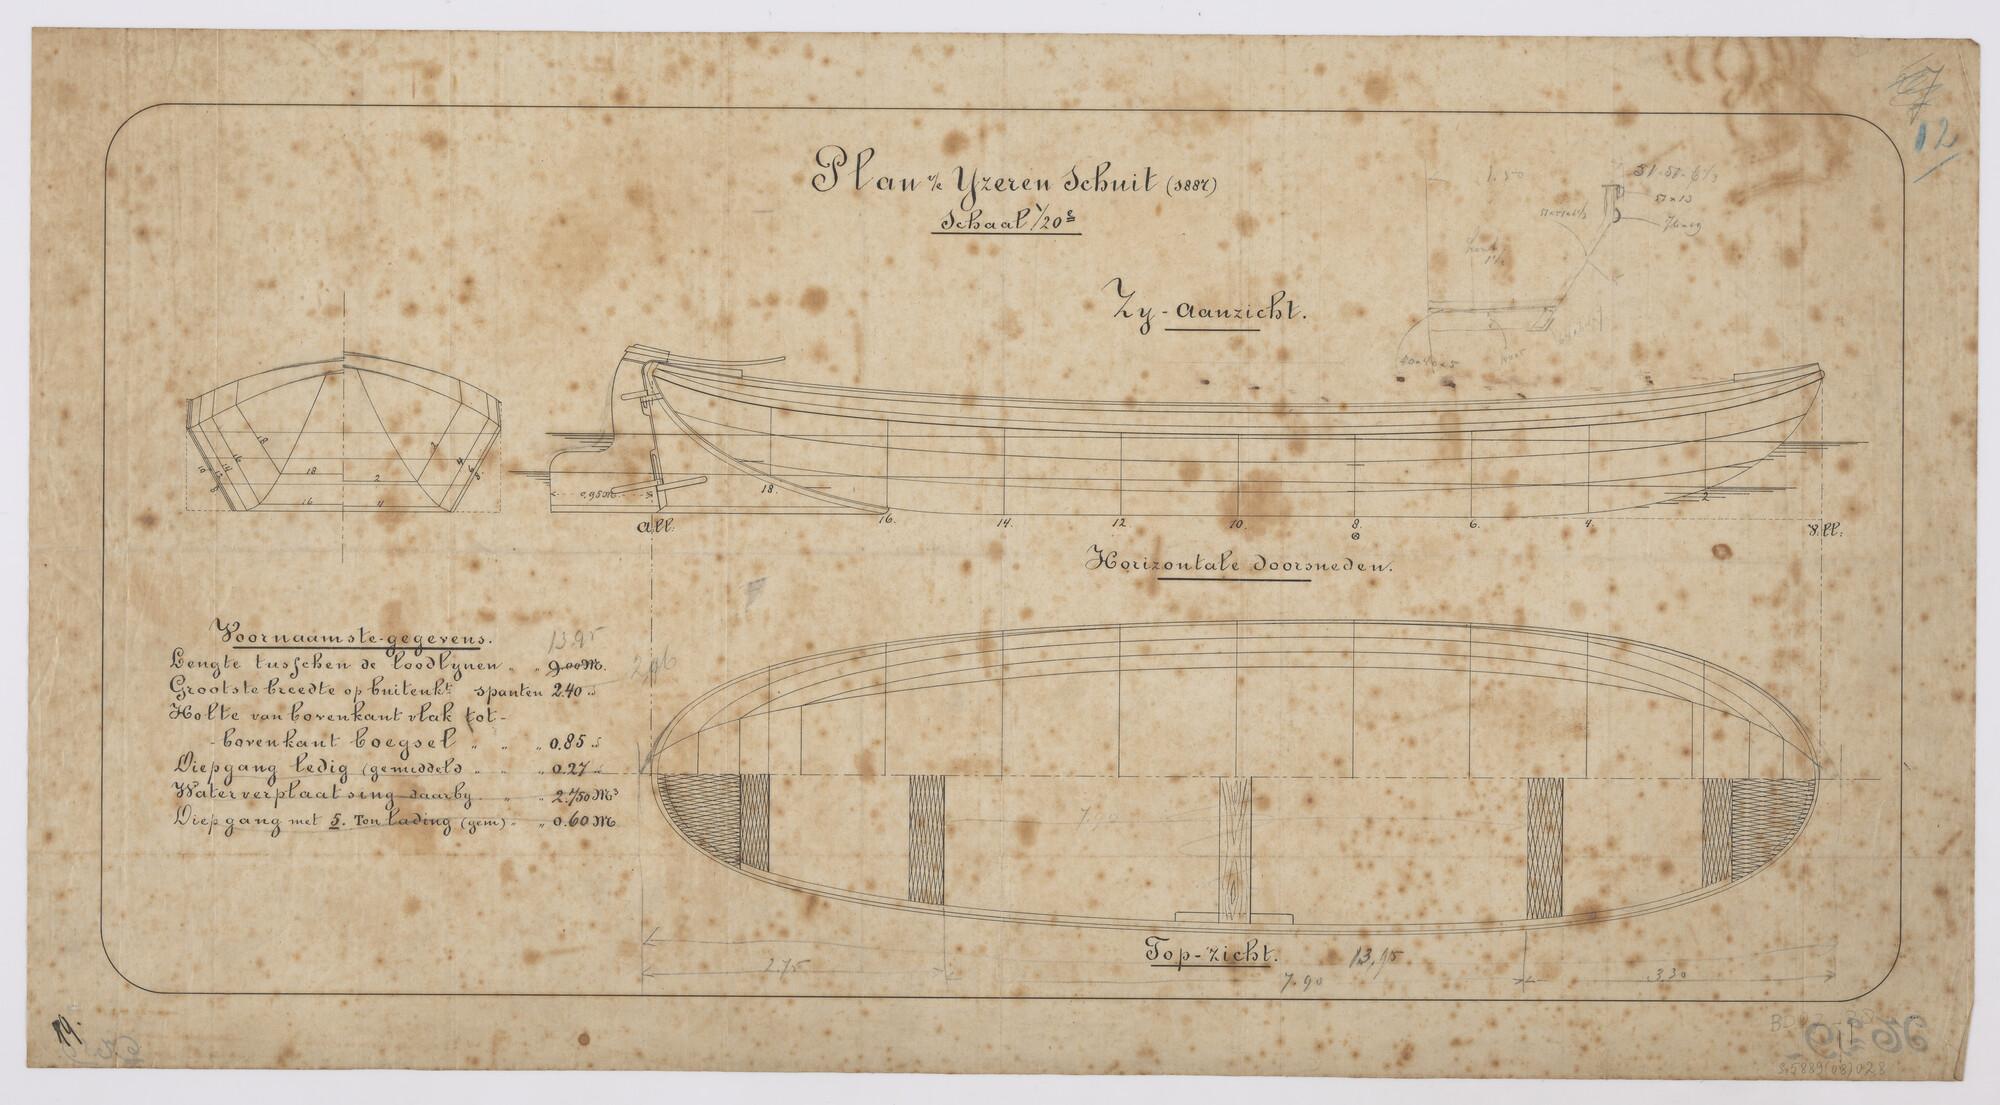 Plan v/e Yzeren Schuit (1887)
Schaal 1/20e
12
1.50
51×13
Zy-aanzicht.
40×40×5
18
16
18
2
16
4
2
4
0.95M.
18.
all:
16.
14.
12
10.
8.
6.
4.
2
v.ll:
Horizontale doorsneden.
Voornaamste-gegevens.
13.95
Lengte tusschen de loodlynen " " 9.00M.
2,96
Grootste breedte op buitenkt spanten 2.40 "
Holte van bovenkant vlak tot-
-bovenkant boegsel " " " 0.85 "
Diepgang ledig (gemiddeld " " " 0.27 "
Waterverplaatsing daarby " " 2.750M³
Diepgang met 5. Ton lading (gem) " " 0.60M
Top-zicht.
13,95
2.75
7.90
3.30
19.
S.5889(08)028